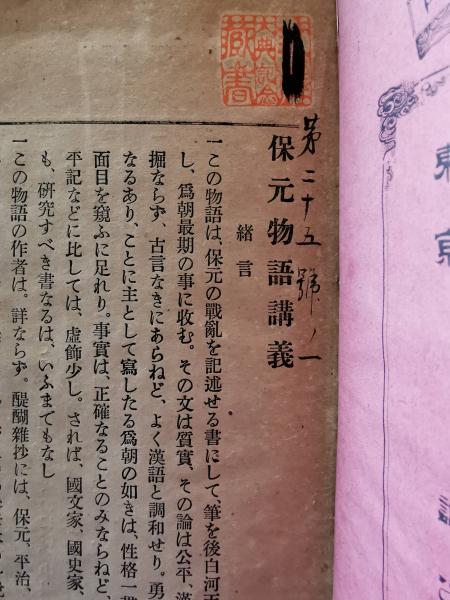 東京
第二十五號ノ一
保元物語講義
緒言
一この物語は、保元の戰亂を記述せる書にして、筆を後白河
し、爲朝最期の事に收む。その文は質實、その論は公平、漢
掘ならず、古言なきにあらねど、よく漢語と調和せり。勇
なるあり、ことに主として寫したる爲朝の如きは、性格一
面目を窺ふに足れり。事實は、正確なることのみならねど、
平記などに比しては、虚飾少し。されば、國文家、國史家、
も、研究すべき書なるは、いふまでもなし
一この物語の作者は。詳ならず。醍醐雜抄には、保元、平治、